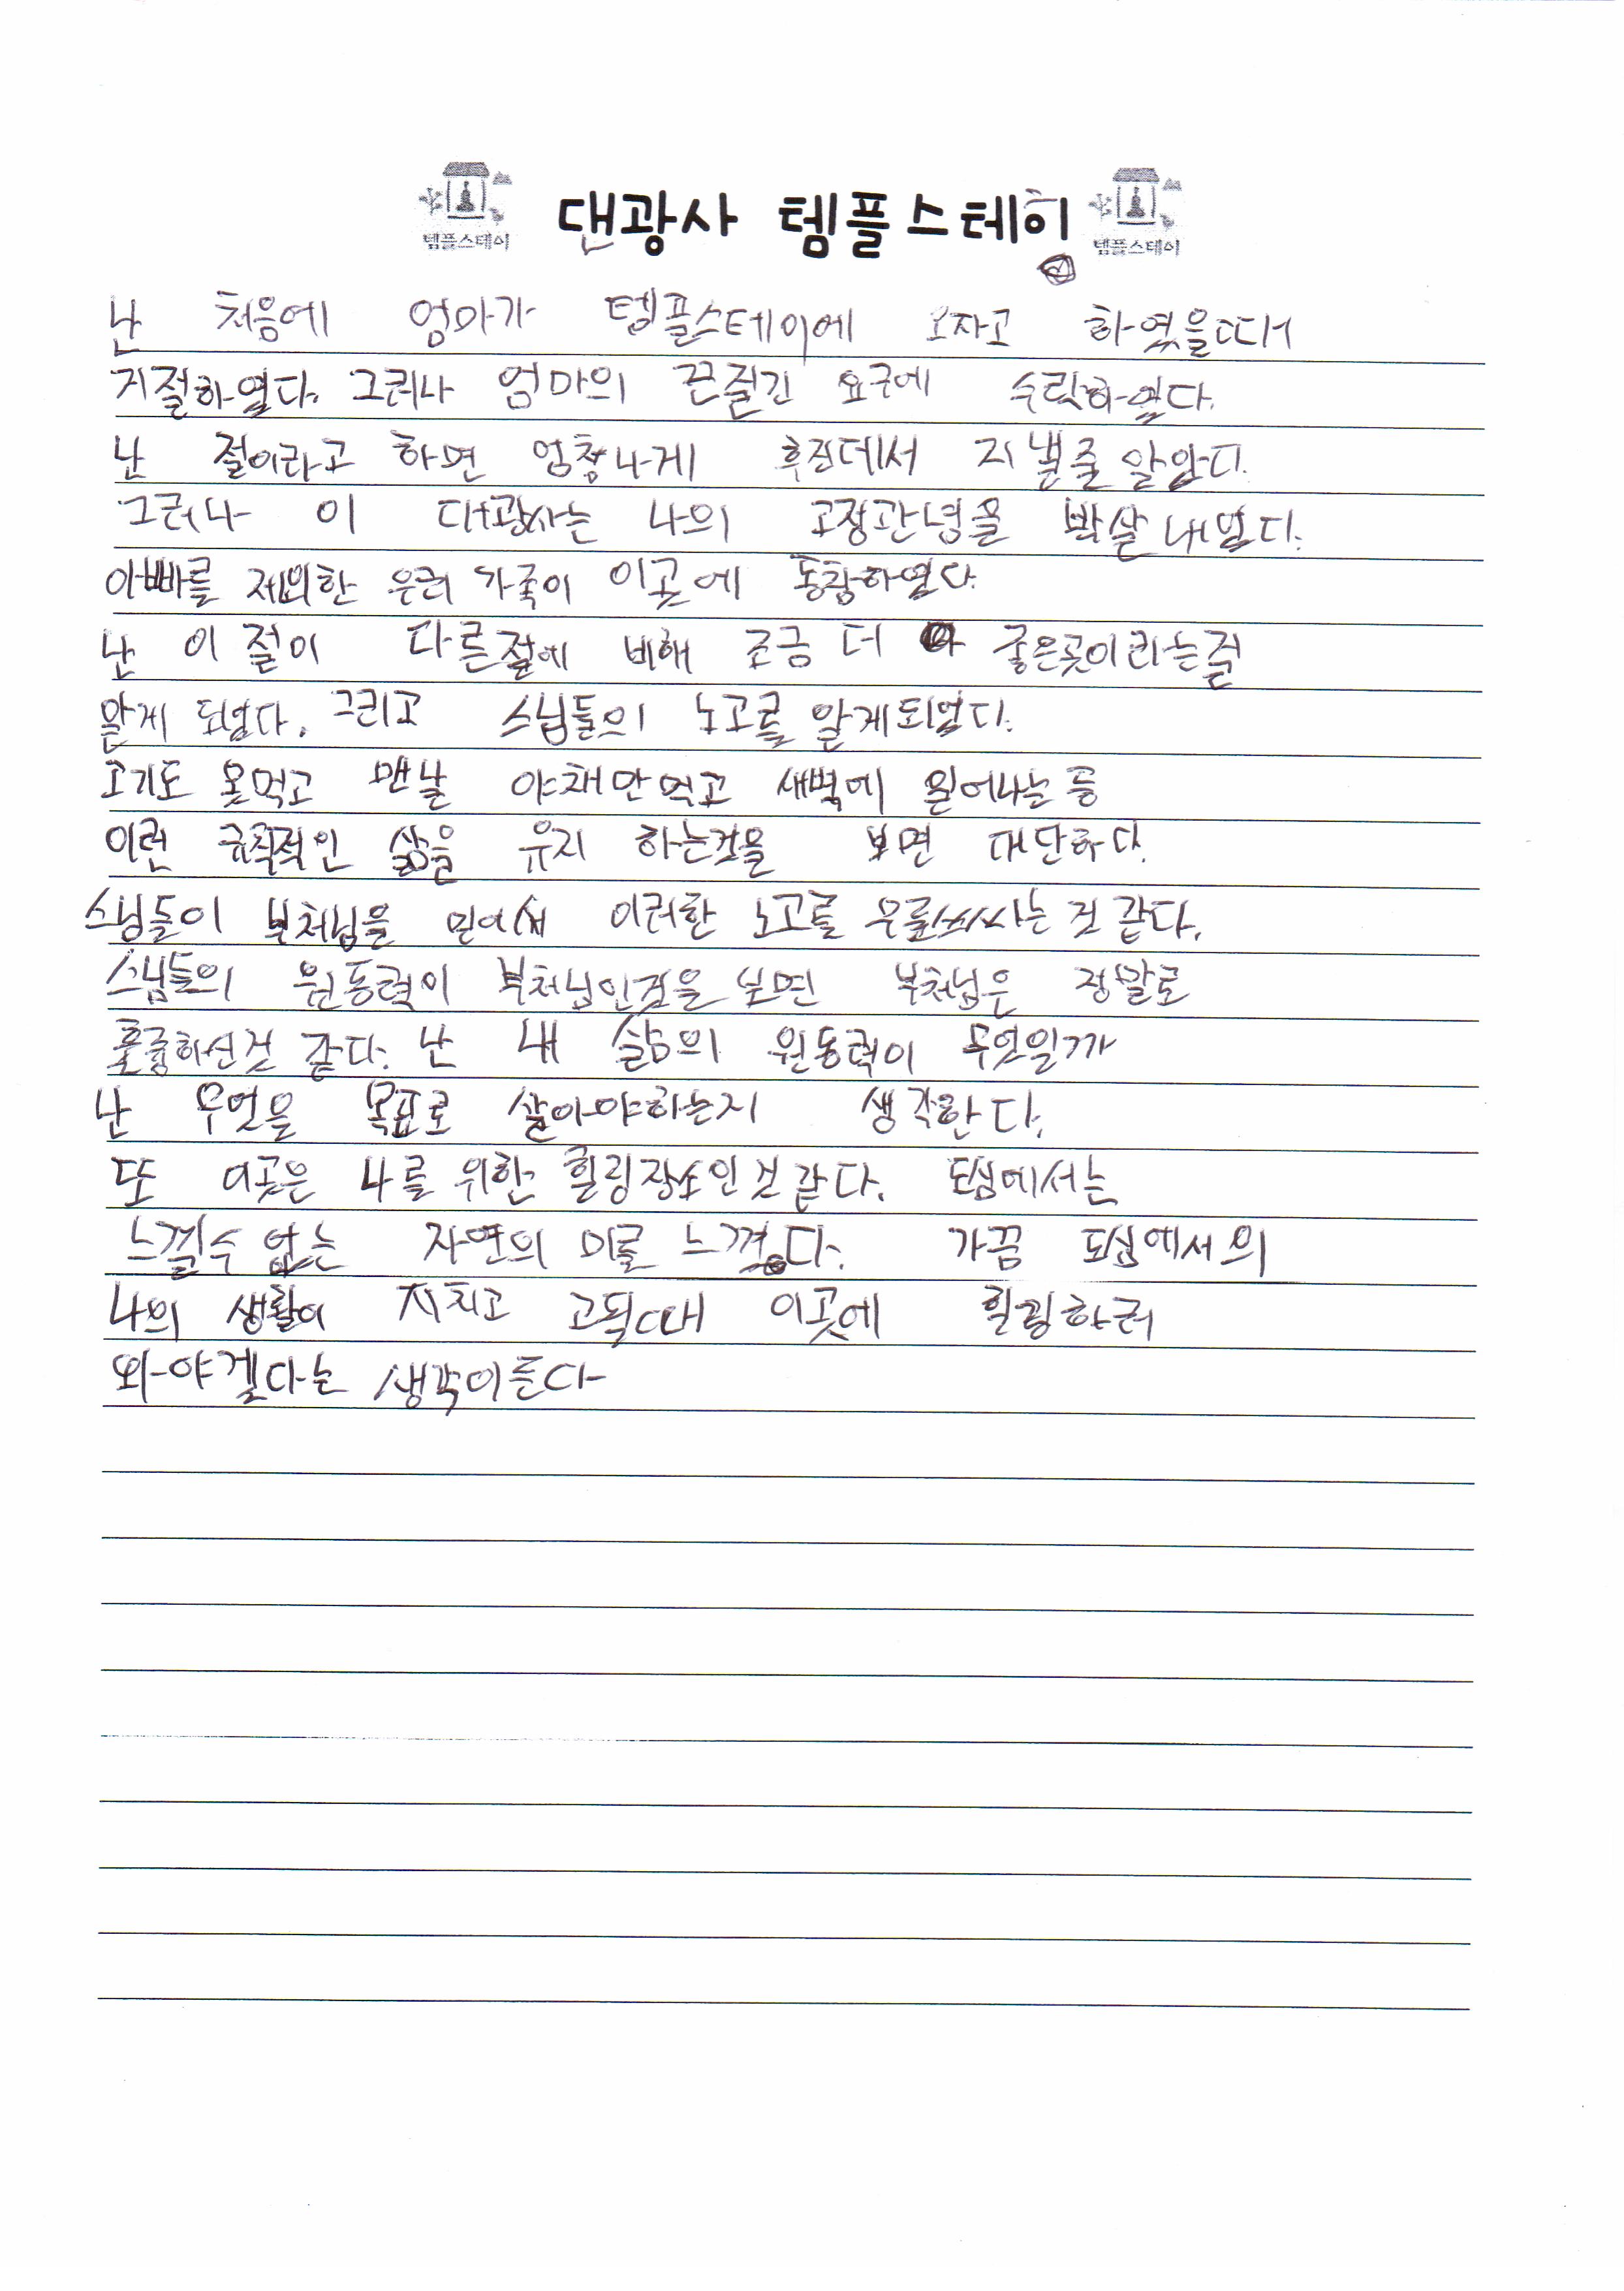 템플스테이 대광사 템플스테이 템플스테이
난 처음에 엄마가 템플스테이에 오자고 하였을때
거절하였다. 그러나 엄마의 끈질긴 요구에 수락하였다.
난 절이라고 하면 엄청나게 후진데서 지낼줄 알았다.
그러나 이 대광사는 나의 고정관념을 박살 내었다.
아빠를 제외한 우리 가족이 이곳에 동참하였다.
난 이 절이 다른절에 비해 조금 더 좋은곳이라는걸
알게 되었다. 그리고 스님들의 노고를 알게되었다.
고기도 못먹고 맨날 야채만먹고 새벽에 일어나는 등
이런 규칙적인 삶을 유지 하는것을 보면 대단하다.
스님들이 부처님을 믿어서 이러한 노고를 무릅쓰시는 것 같다.
스님들의 원동력이 부처님인것을 보면 부처님은 정말로
훌륭하신것 같다. 난 내 삶의 원동력이 무엇일까
난 무엇을 목표로 살아야하는지 생각한다.
또 이곳은 나를 위한 힐링장소인 것 같다. 도심에서는
느낄수 없는 자연의 미를 느꼈다. 가끔 도심에서의
나의 생활이 지치고 고될때 이곳에 힐링하러
와야겠다는 생각이든다